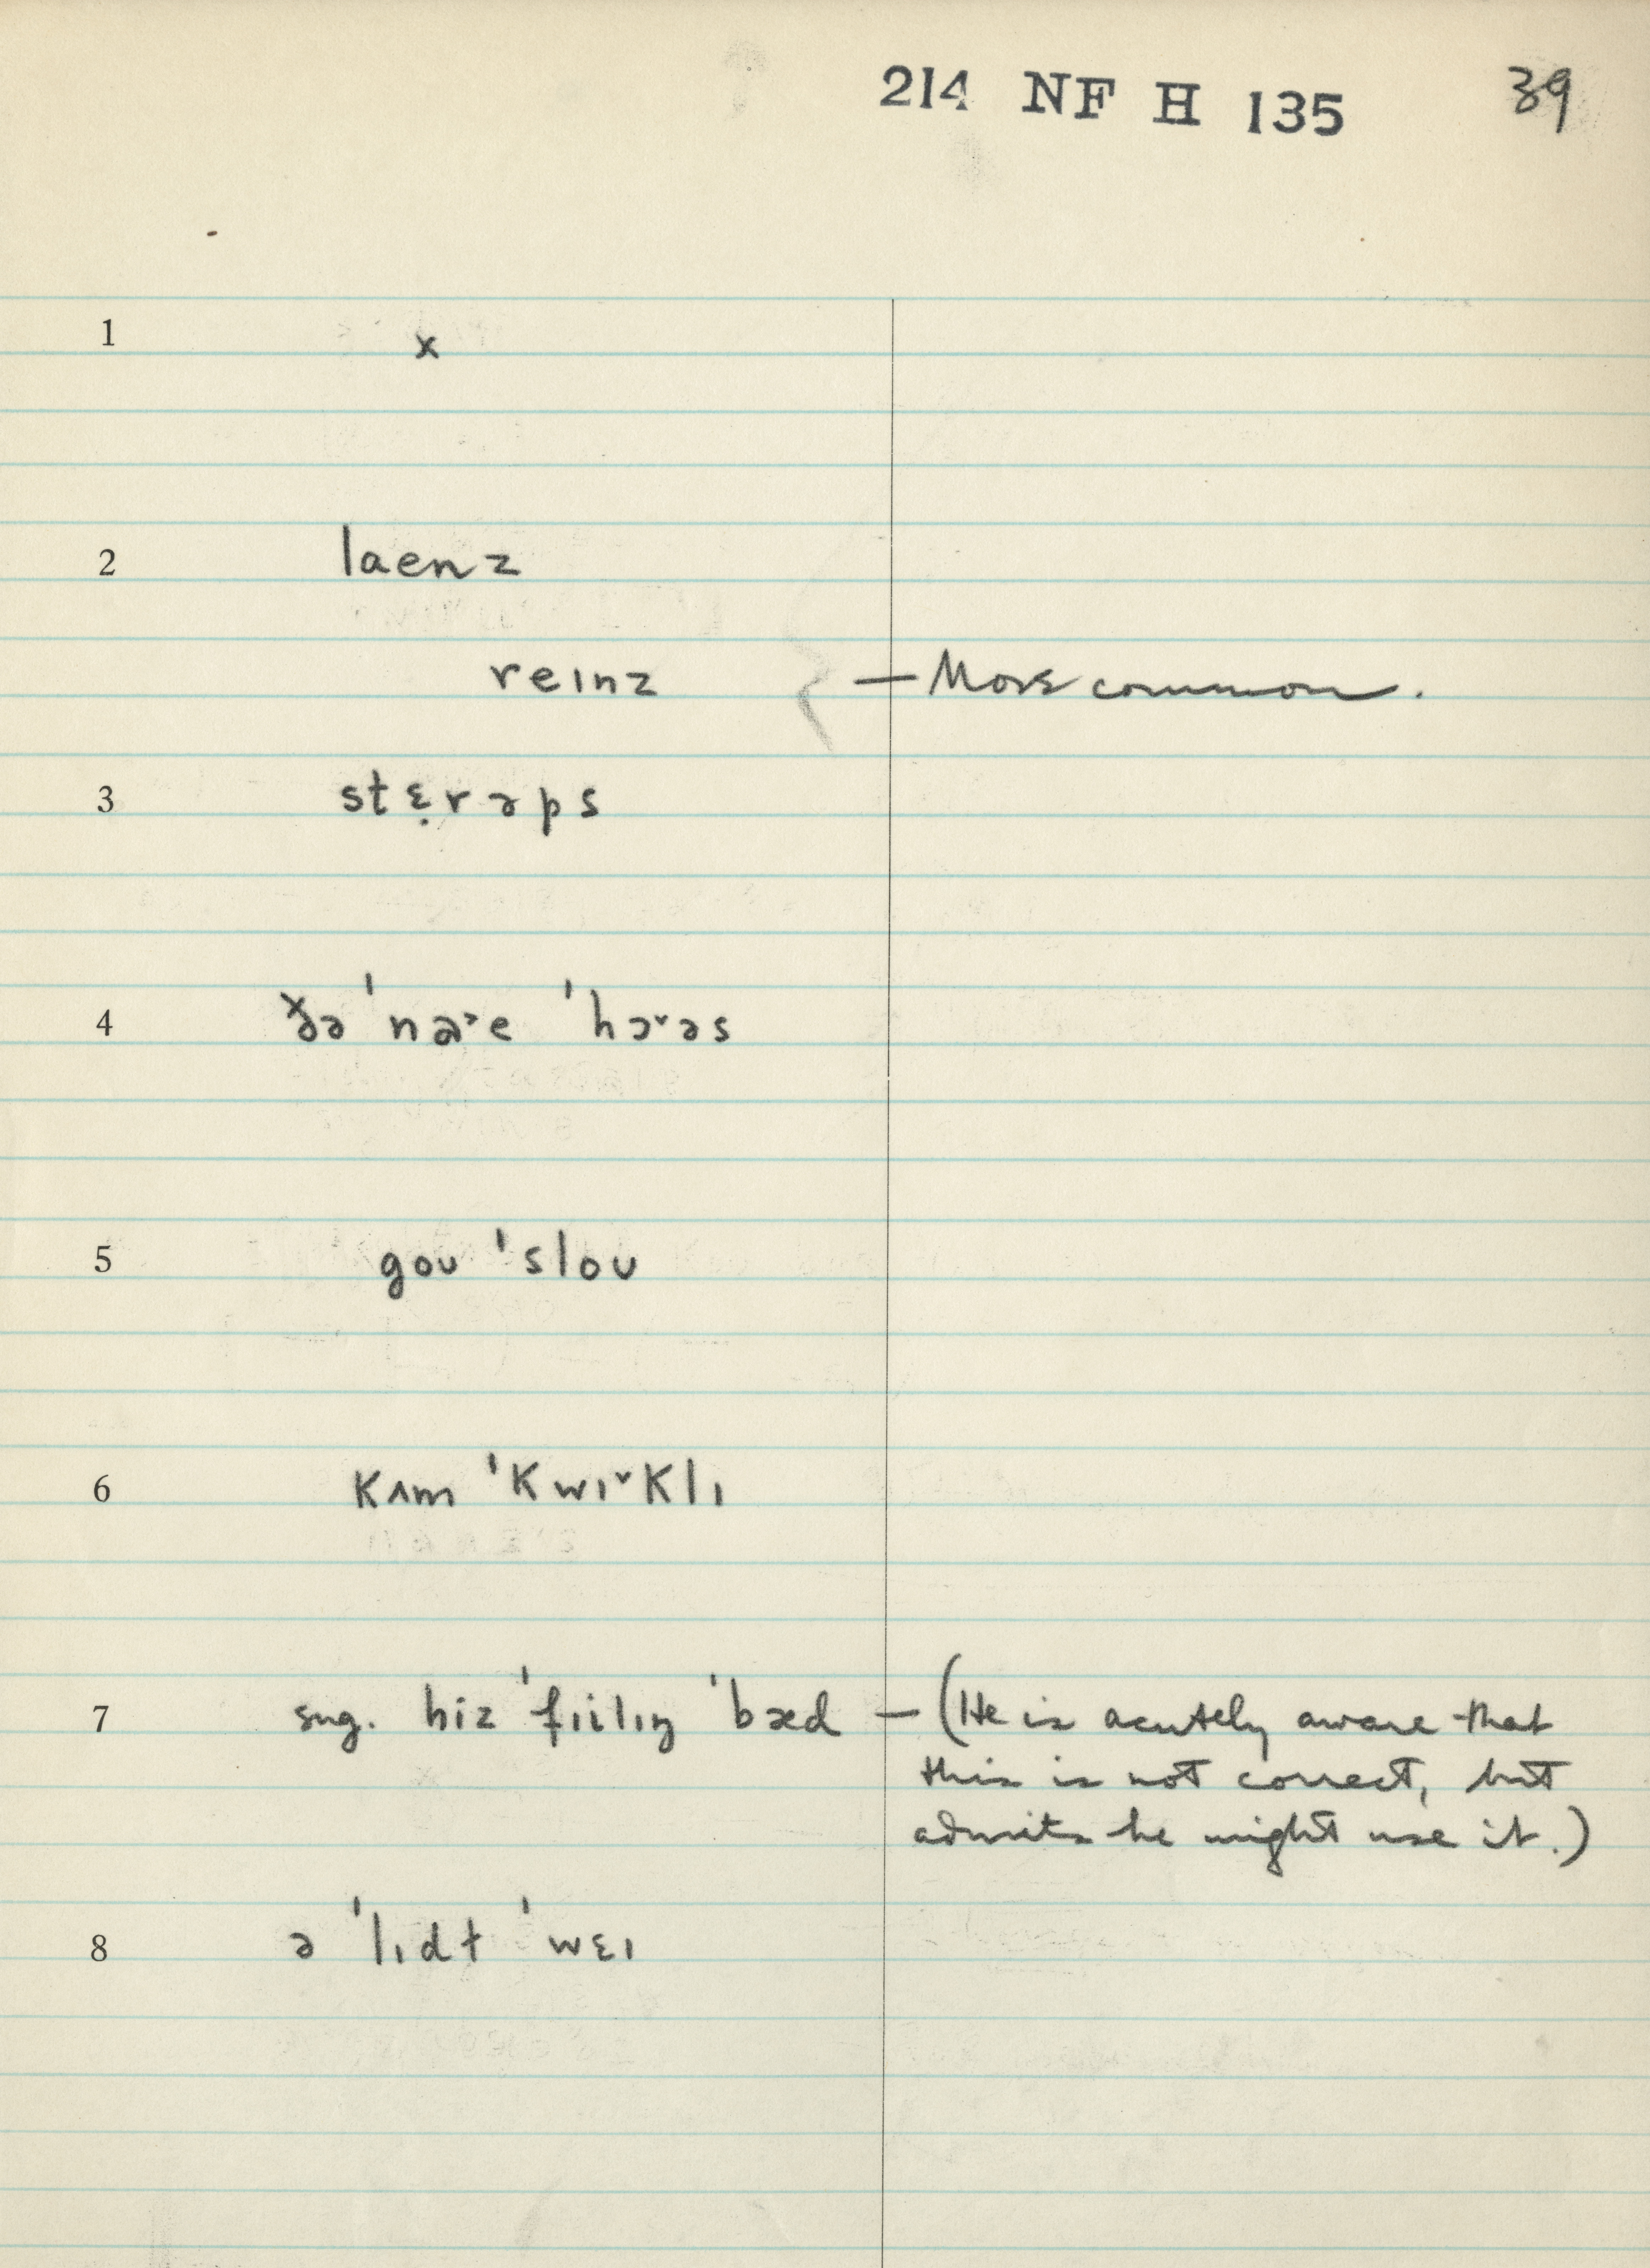 214 NF H 135 39
1 x
2 laenz
reɪnz — More common.
3 stɛ̣rəps
4 ðə ˈnɚ˃e ˈhɔ˅əs
5 goʊ ˈsloʊ
6 kʌm ˈkwɪ˅klɪ
7 sug. hiz ˈfɪilɪŋ ˈbæd — (He is acutely aware that
this is not correct, but
admits he might use it.)
8 ə ˈlɪdt ˈwɛɪ